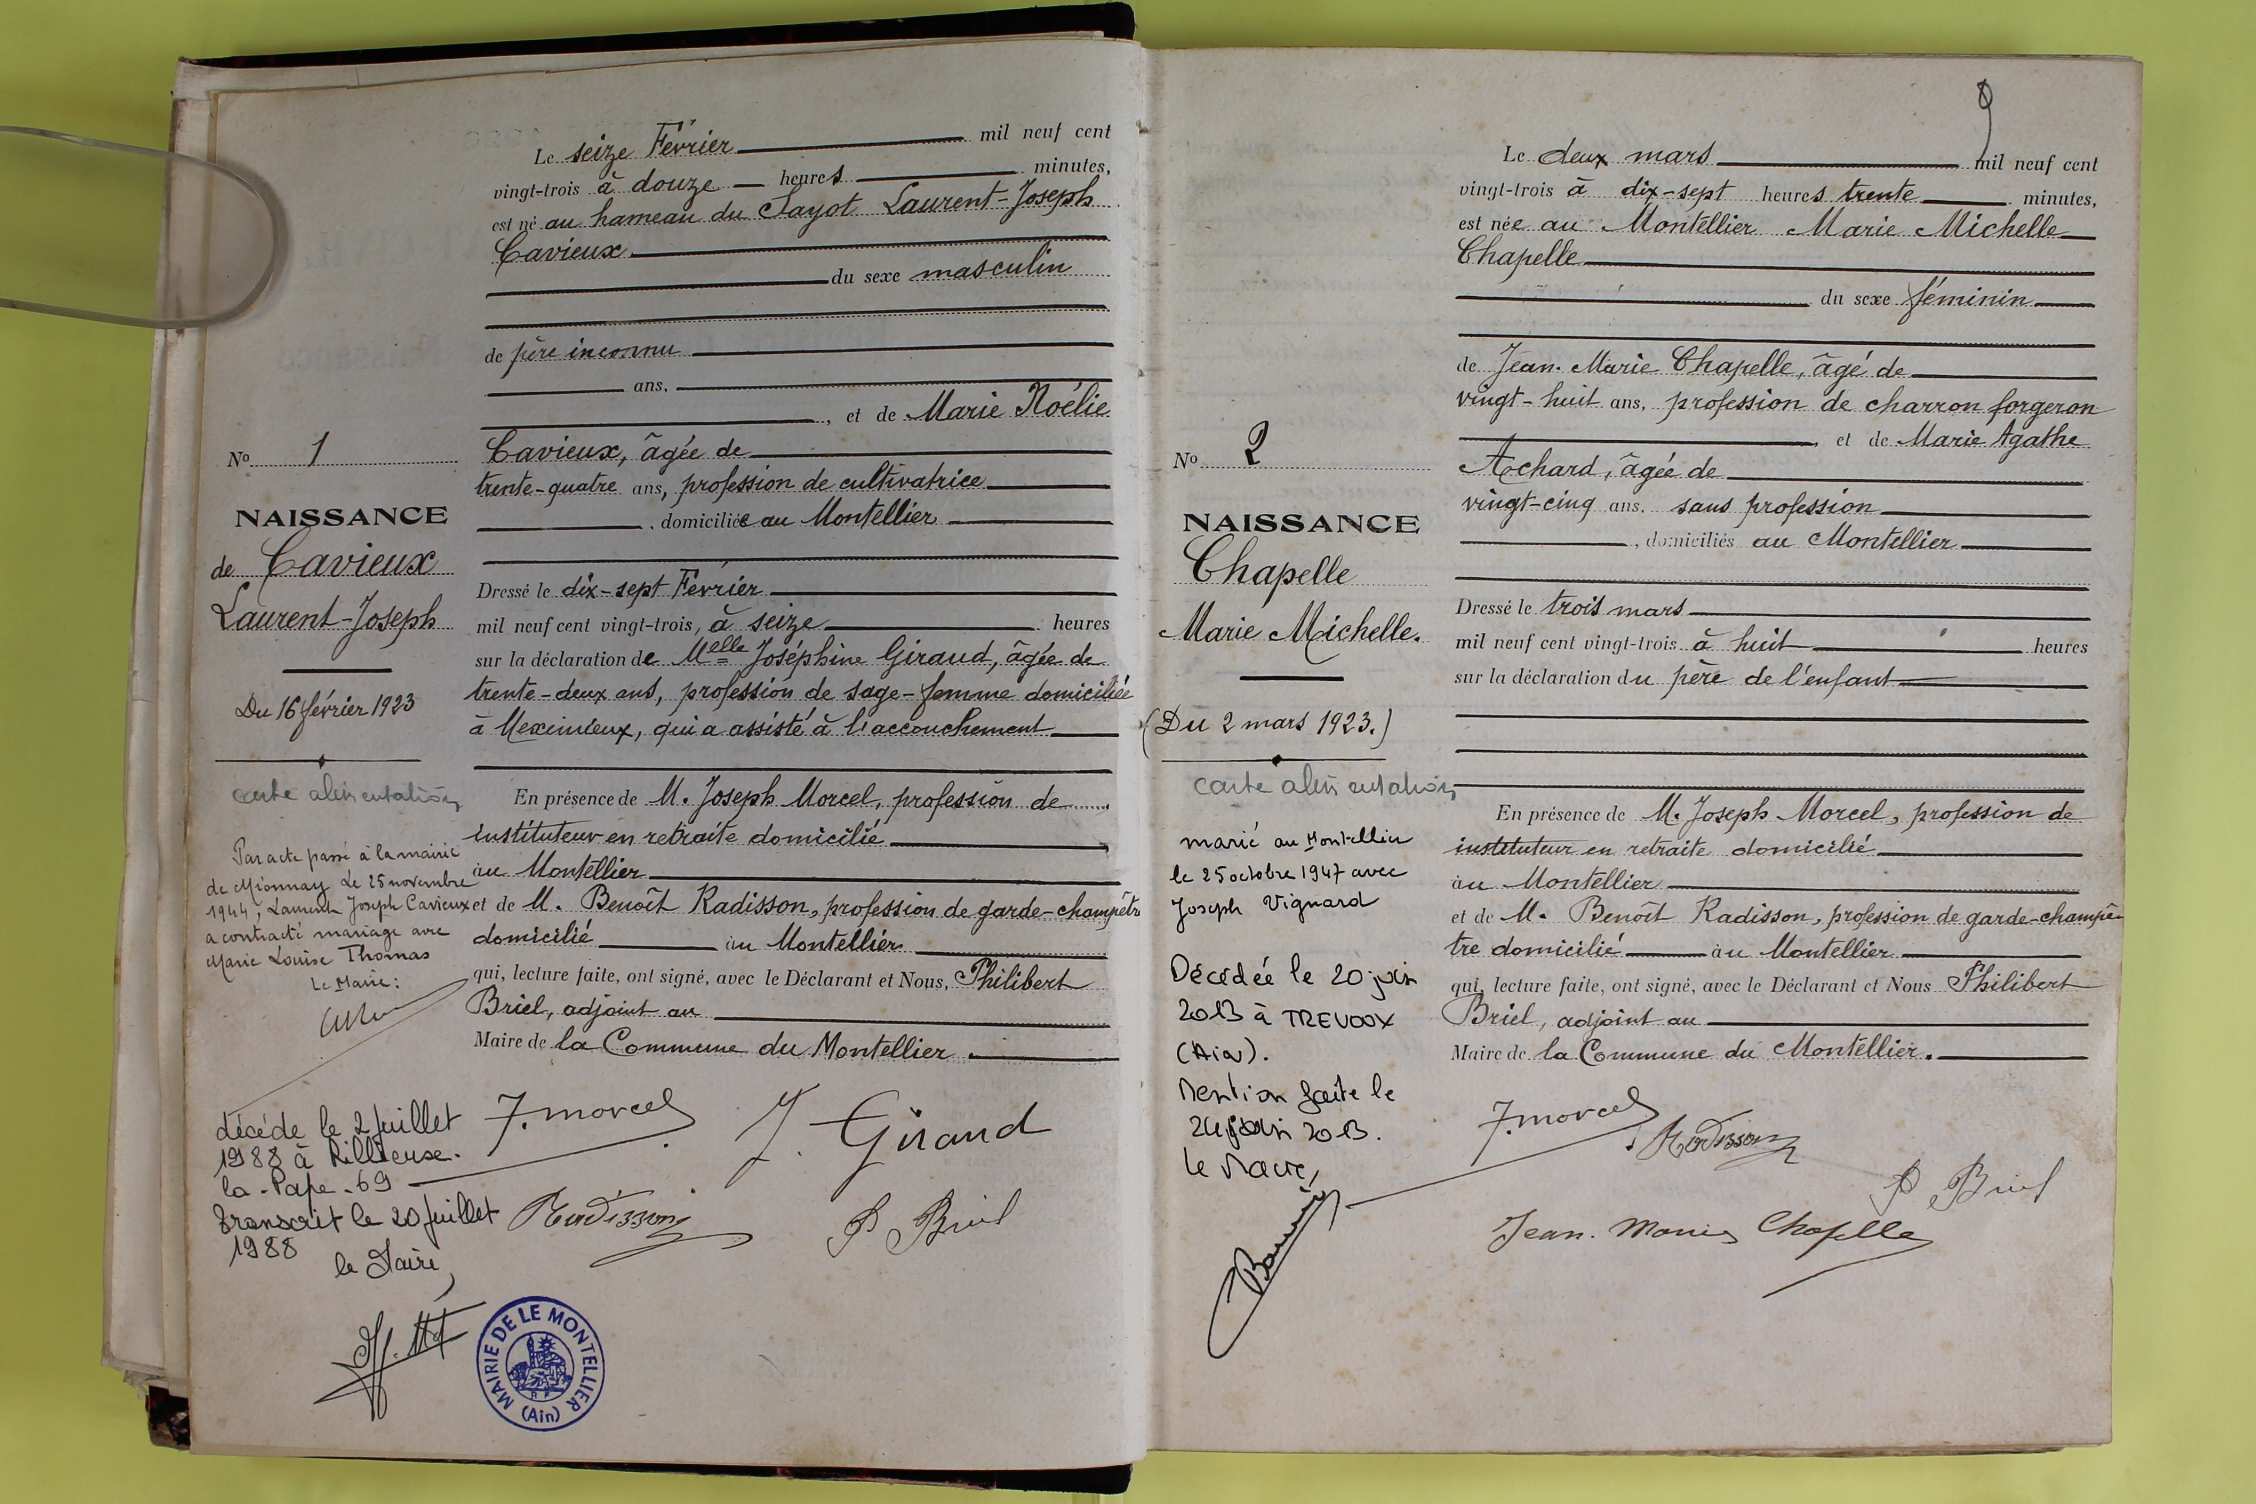 Le seize Février mil neuf cent
vingt-trois à douze heures minutes,
est né au hameau du Sayot Laurent-Joseph
Cavieux
du sexe masculin
de père inconnu
ans,
, et de Marie Noélie
Cavieux, âgée de
trente-quatre ans, profession de cultivatrice
, domiciliée au Montellier
Dressé le dix-sept Février
mil neuf cent vingt-trois, à seize heures
sur la déclaration de Melle Joséphine Giraud, âgée de
trente-deux ans, profession de sage-femme domiciliée
à Meximieux, qui a assisté à l'accouchement
En présence de M. Joseph Morcel, profession de
instituteur en retraite domicilié
au Montellier
et de M. Benoît Radisson, profession de garde-champêtre
domicilié au Montellier
qui, lecture faite, ont signé, avec le Déclarant et Nous, Philibert
Briel, adjoint au
Maire de la Commune du Montellier.
J. morcel J. Giraud
Radisson P Briel
No 1
NAISSANCE
de Cavieux
Laurent-Joseph
Du 16 février 1923
carte alimentation
Par acte passé à la mairie
de Mionnay le 25 novembre
1944, Laurent Joseph Cavieux
a contracté mariage avec
Marie Louise Thomas
Le Maire:
décédé le 2 juillet
1988 à Rillieux-
la-Pape-69
transcrit le 20 juillet
1988
le Maire,
MAIRIE DE LE MONTELLIER
R F
(Ain)
9
Le deux mars mil neuf cent
vingt-trois à dix-sept heures trente minutes,
est née au Montellier Marie Michelle
Chapelle
du sexe féminin
de Jean-Marie Chapelle, âgé de
vingt-huit ans, profession de charron forgeron
, et de Marie Agathe
Achard, âgée de
vingt-cinq ans, sans profession
, domiciliés au Montellier
Dressé le trois mars
mil neuf cent vingt-trois à huit heures
sur la déclaration du père de l'enfant
En présence de M. Joseph Morcel, profession de
instituteur en retraite domicilié
au Montellier
et de M. Benoît Radisson, profession de garde-champê-
tre domicilié au Montellier
qui, lecture faite, ont signé, avec le Déclarant et Nous Philibert
Briel, adjoint au
Maire de la Commune du Montellier.
J. morcel Radisson
P Briel
Jean-Marie Chapelle
No 2
NAISSANCE
Chapelle
Marie Michelle.
(Du 2 mars 1923.)
carte alimentation
marié au Montellier
le 25 octobre 1947 avec
Joseph Vignard
Décédée le 20 juin
2013 à TREVOUX
(Ain).
Mention faite le
24 juin 2013.
le Maire,